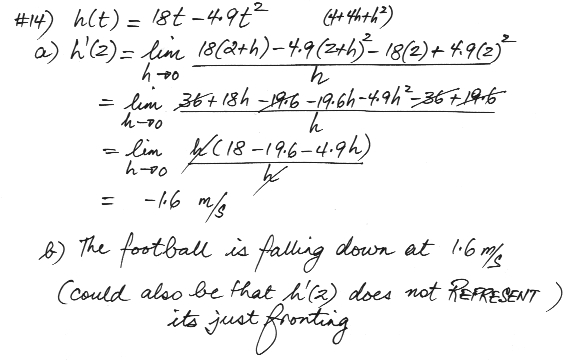 #14) h(t) = 18t - 4.9t² (4+4h+h²)
a) h'(2) = lim h→0 18(2+h) - 4.9(2+h)² - 18(2) + 4.9(2)² / h
= lim h→0 36 + 18h - 19.6 - 19.6h - 4.9h² - 36 + 19.6 / h
= lim h→0 h(18 - 19.6 - 4.9h) / h
= -1.6 m/s
b) The football is falling down at 1.6 m/s
(could also be that h'(2) does not REPRESENT)
its just fronting